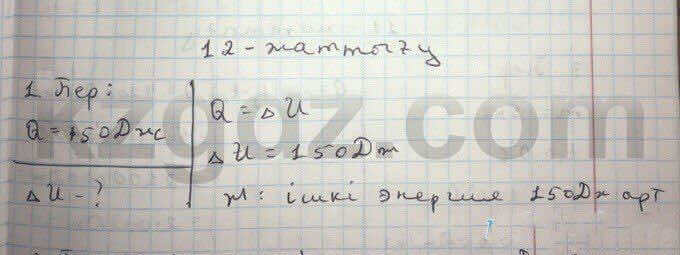 12-жаттығу
1 Бер:
Q = 150 Дж
ΔU - ?
Q = ΔU
ΔU = 150 Дж
ж: ішкі энергия 150 Дж арт
kzgdz.com